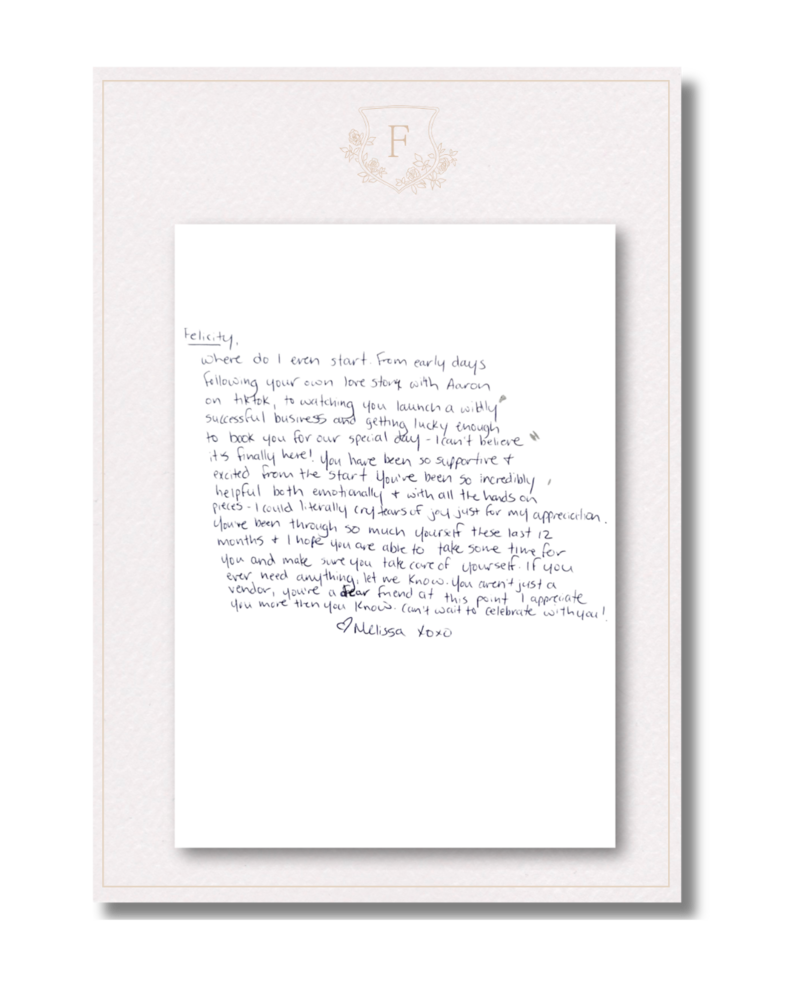 F
Felicity,
Where do I even start. From early days
following your own love story with Aaron
on tiktok, to watching you launch a wildly
successful business and getting lucky enough
to book you for our special day - I can't believe
it's finally here! You have been so supportive +
excited from the start you've been so incredibly
helpful both emotionally + with all the hands on
pieces - I could literally cry tears of joy just for my appreciation.
You've been through so much yourself these last 12
months + I hope you are able to take some time for
you and make sure you take care of yourself. If you
ever need anything, let me know. You aren't just a
vendor, you're a dear friend at this point I appreciate
you more then you know. Can't wait to celebrate with you!
♡Melissa xoxo